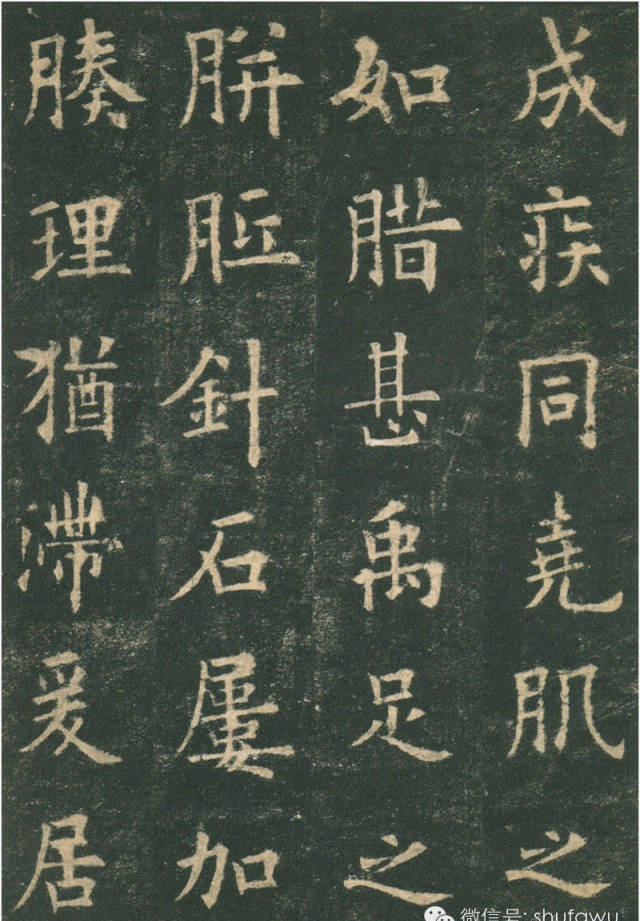 成疾同堯肌之
如腊甚禹足之
胼胝針石屢加
腠理猶滯爰居
微信号: shufawu